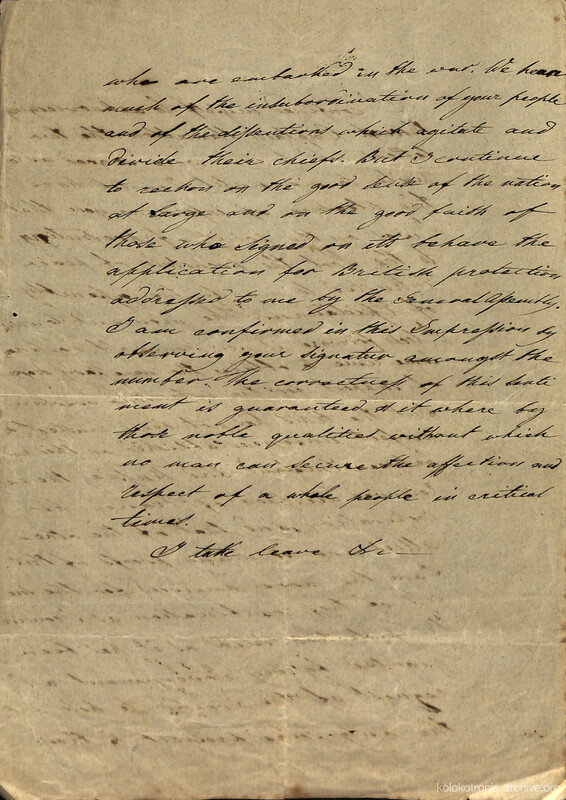 who are embarked in the war. We hear
much of the insubordination of your people
and of the dissentions which agitate and
divide their chiefs. But I continue
to reckon on the good sense of the nation
at large and on the good faith of
those who signed on its behave the
application for British protection
addressed to me by the General Assembly.
I am confirmed in this Impression by
observing your signatur amongst the
number. The correctness of this senti
ment is guaranteed as it where by
those noble qualities without which
no man can secure the affection and
respect of a whole people in critical
times.
I take leave &c —
kolokotronis-archive.org